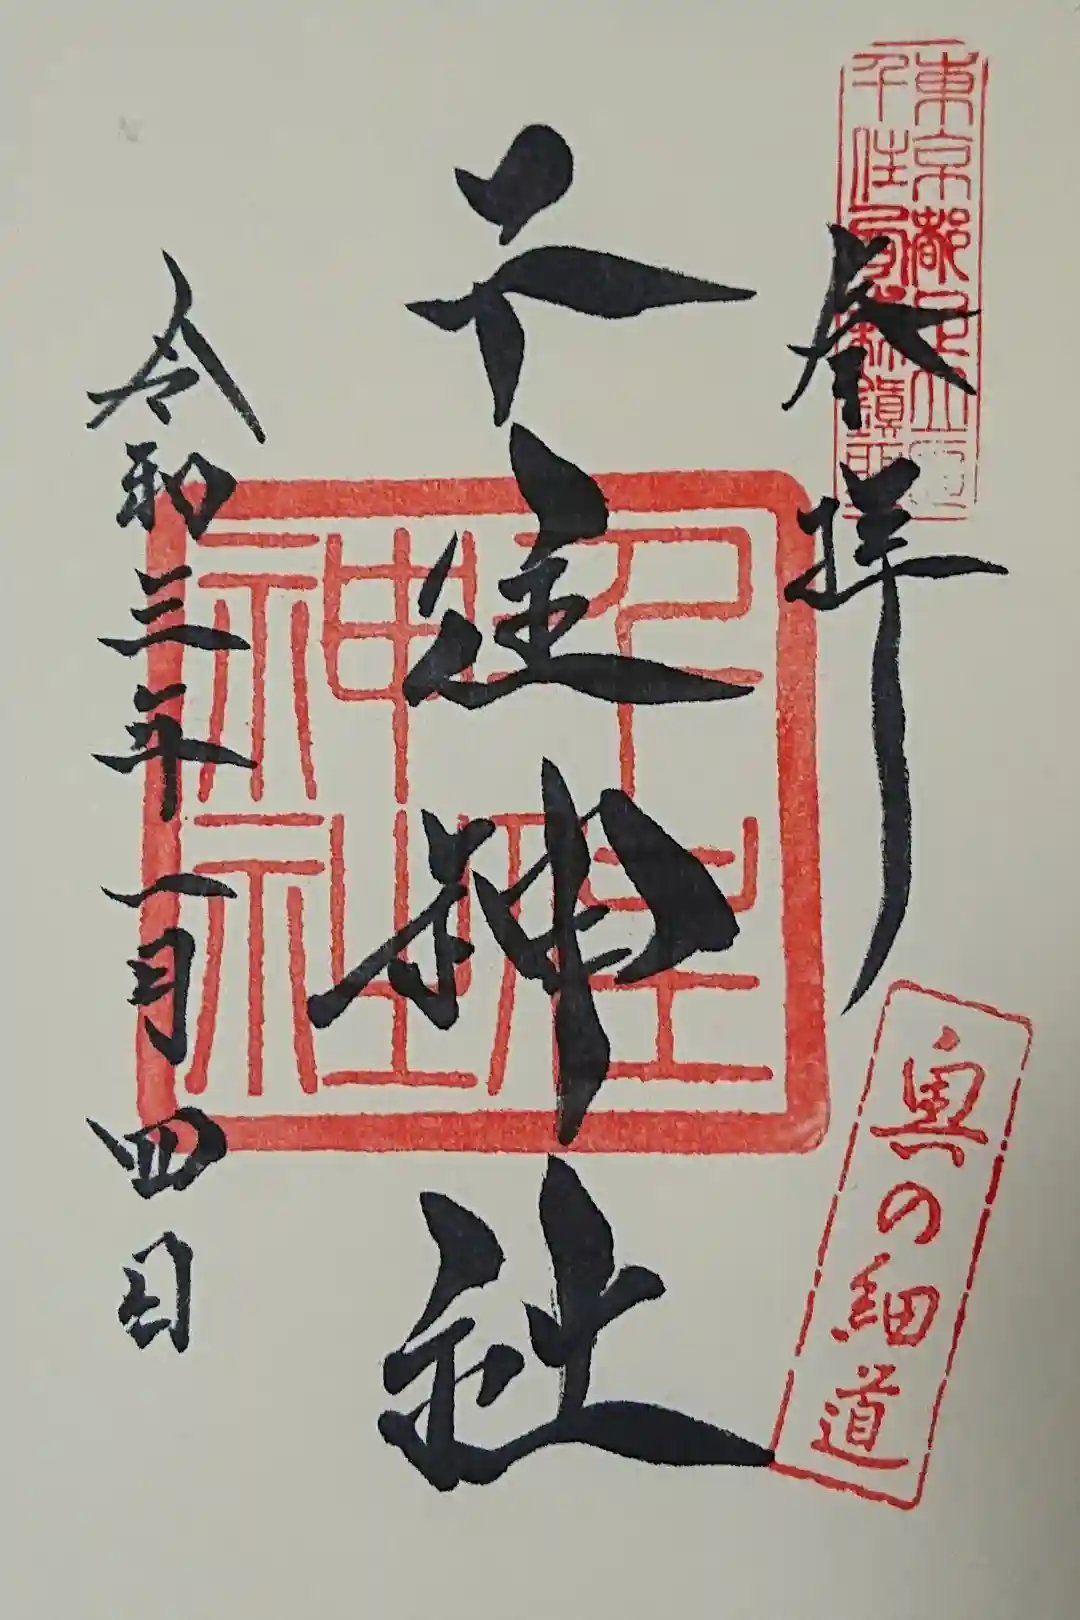 東京都足立区
千住宮元町鎮座
参拝
奥の細道
千住神社
千住
神社
令和三年一月四日